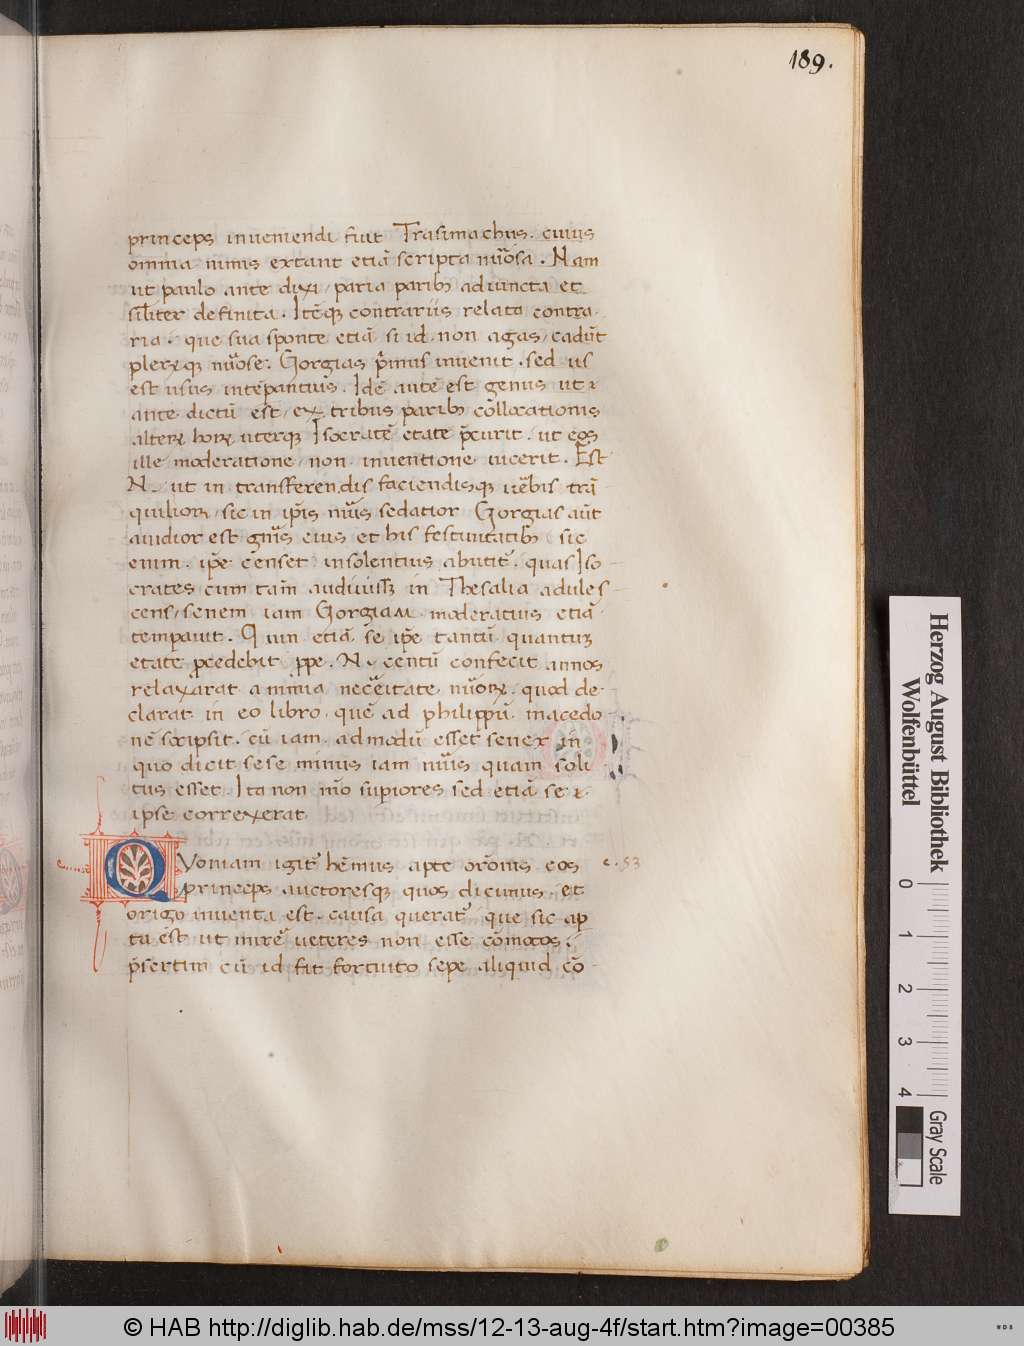 189.
princeps inueniendi fuit Trasimachus. cuius
omnia nimis extant etiā scripta nūosa. Nam
ut paulo ante dixi / paria parib adiuncta et
silīter definita. Itēqꝫ contrariis relata contra
ria. que sua sponte etiā si id non agas, cadūt
plerꝝqꝫ nūose. Gorgias p̄mus inuenit. sed iis
est usus intēpantius. Idē autē est genus ut
ante dictū est, ex tribus parib collocationis
alterꝝ horꝝ uterqꝫ Isocratē etate p̄currit. ut eos
ille moderatione, non inuentione uicerit. Est
N. ut in transferendis faciendisqꝫ uēbis trā
quilior, sic in ip̄is nūis sedatior Gorgias aūt
auidior est gnīs eius et his festiuitatib sic
enim ip̄e censet insolentius abutit᷑. quas Iso
crates cum tam̄ audiuissꝫ in Thesalia adules
cens, senem iam Gorgiam moderatius etiā
tempauit. Quin etiā se ip̄e tantū quantuꝫ
etate p̄cedebit ꝓpe. N. centū confecit annos
relaxarat a nimia necc̄itate nūorꝝ. quod de
clarat in eo libro quē ad philippū macedo
nē scripsit. cū iam admodū esset senex in
quo dicit sese minus iam nūis quam soli
tus esset. Ita non mō supiores sed etiā se
ipse correxerat
Quoniam igit᷑ hēmus apte orōnis eos c. 53
princeps auctoresqꝫ quos dicimus. et
origo inuenta est. causa querat᷑ que sic ap
ta est ut mirer ueteres non esse cōmotos.
p̄sertim cū id fit fortuito sepe aliquid cō
Herzog August Bibliothek
Wolfenbüttel
0 1 2 3 4
Gray Scale
© HAB http://diglib.hab.de/mss/12-13-aug-4f/start.htm?image=00385